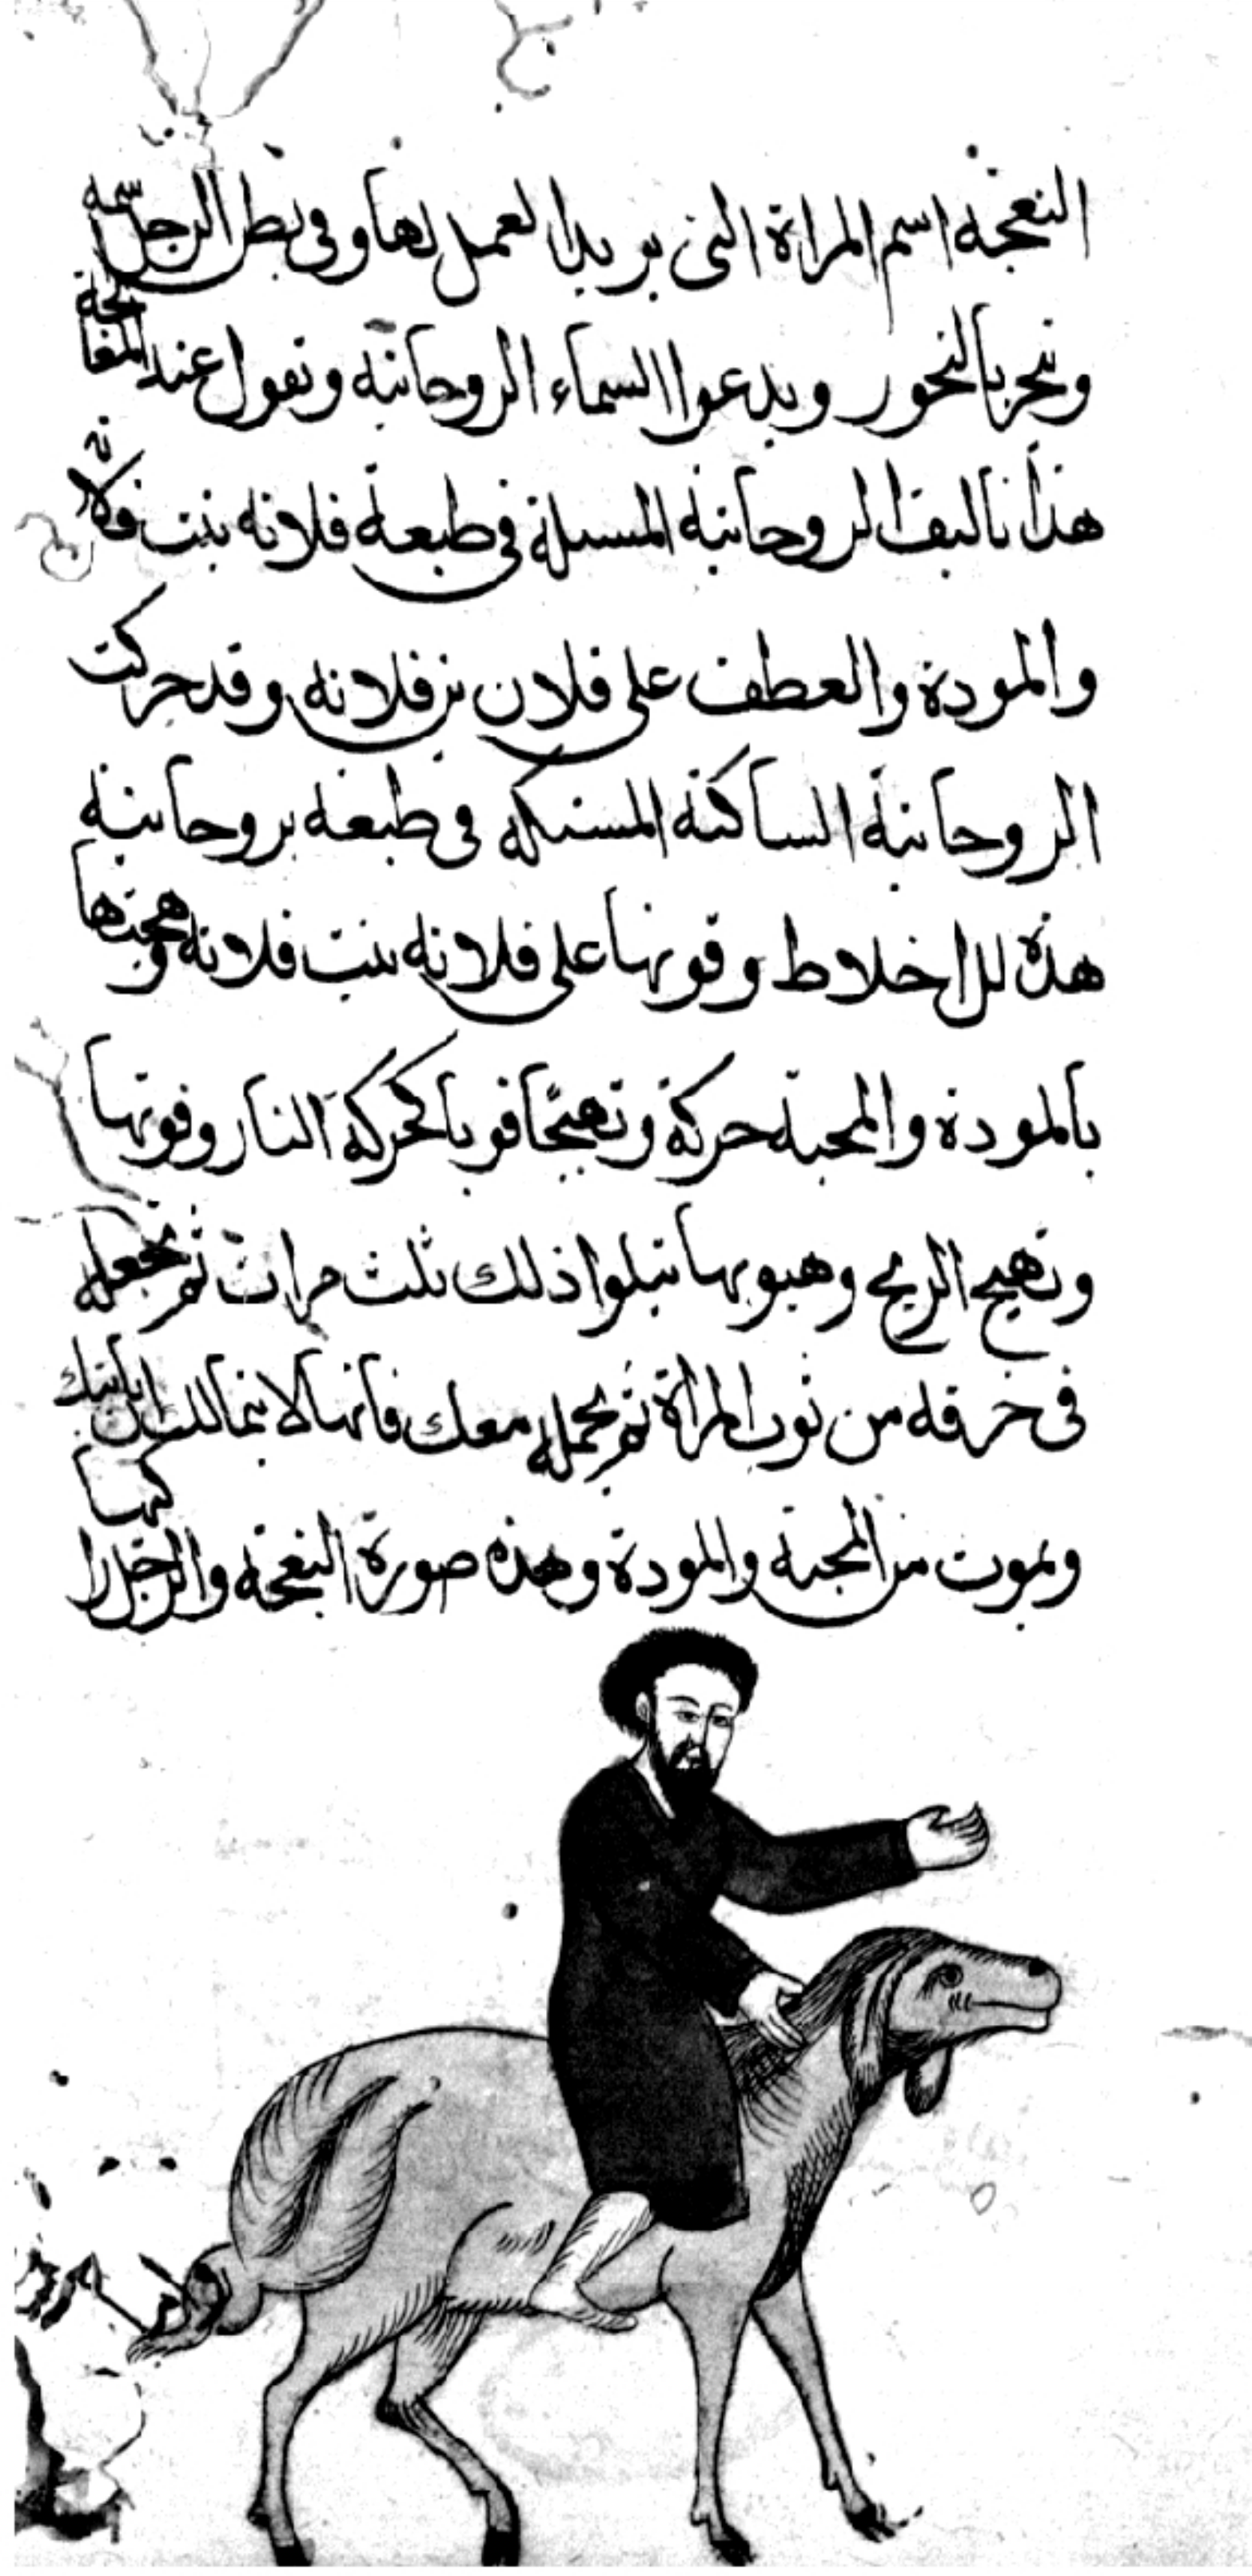 النعجة اسم المراة التى يريد العمل لها وفى بطن الرجل اسمه
وتبخر بالبخور ويدعوا السماء الروحانية وتقول عند المعالجة
هذا تاليف الروحانية المسبلة فى طبعة فلانه بنت فلانه
والمودة والعطف على فلان بن فلانه وقد حركت
الروحانية الساكنة المستكه فى طبعه بروحانية
هذه للاخلاط وقوتها على فلانه بنت فلانه وهيجتها
بالمودة والمحبة حركة وتهيجا قويا كحركة النار وقوتها
وتهيج الريح وهبوبها تتلوا ذلك ثلث مرات ثم تجعله
فى خرقه من ثوب المراة ثم يحمله معك فانها لا تتمالك ان ياتيك
وتموت من المحبة والمودة وهذه صورة النعجة والرجل راكبها